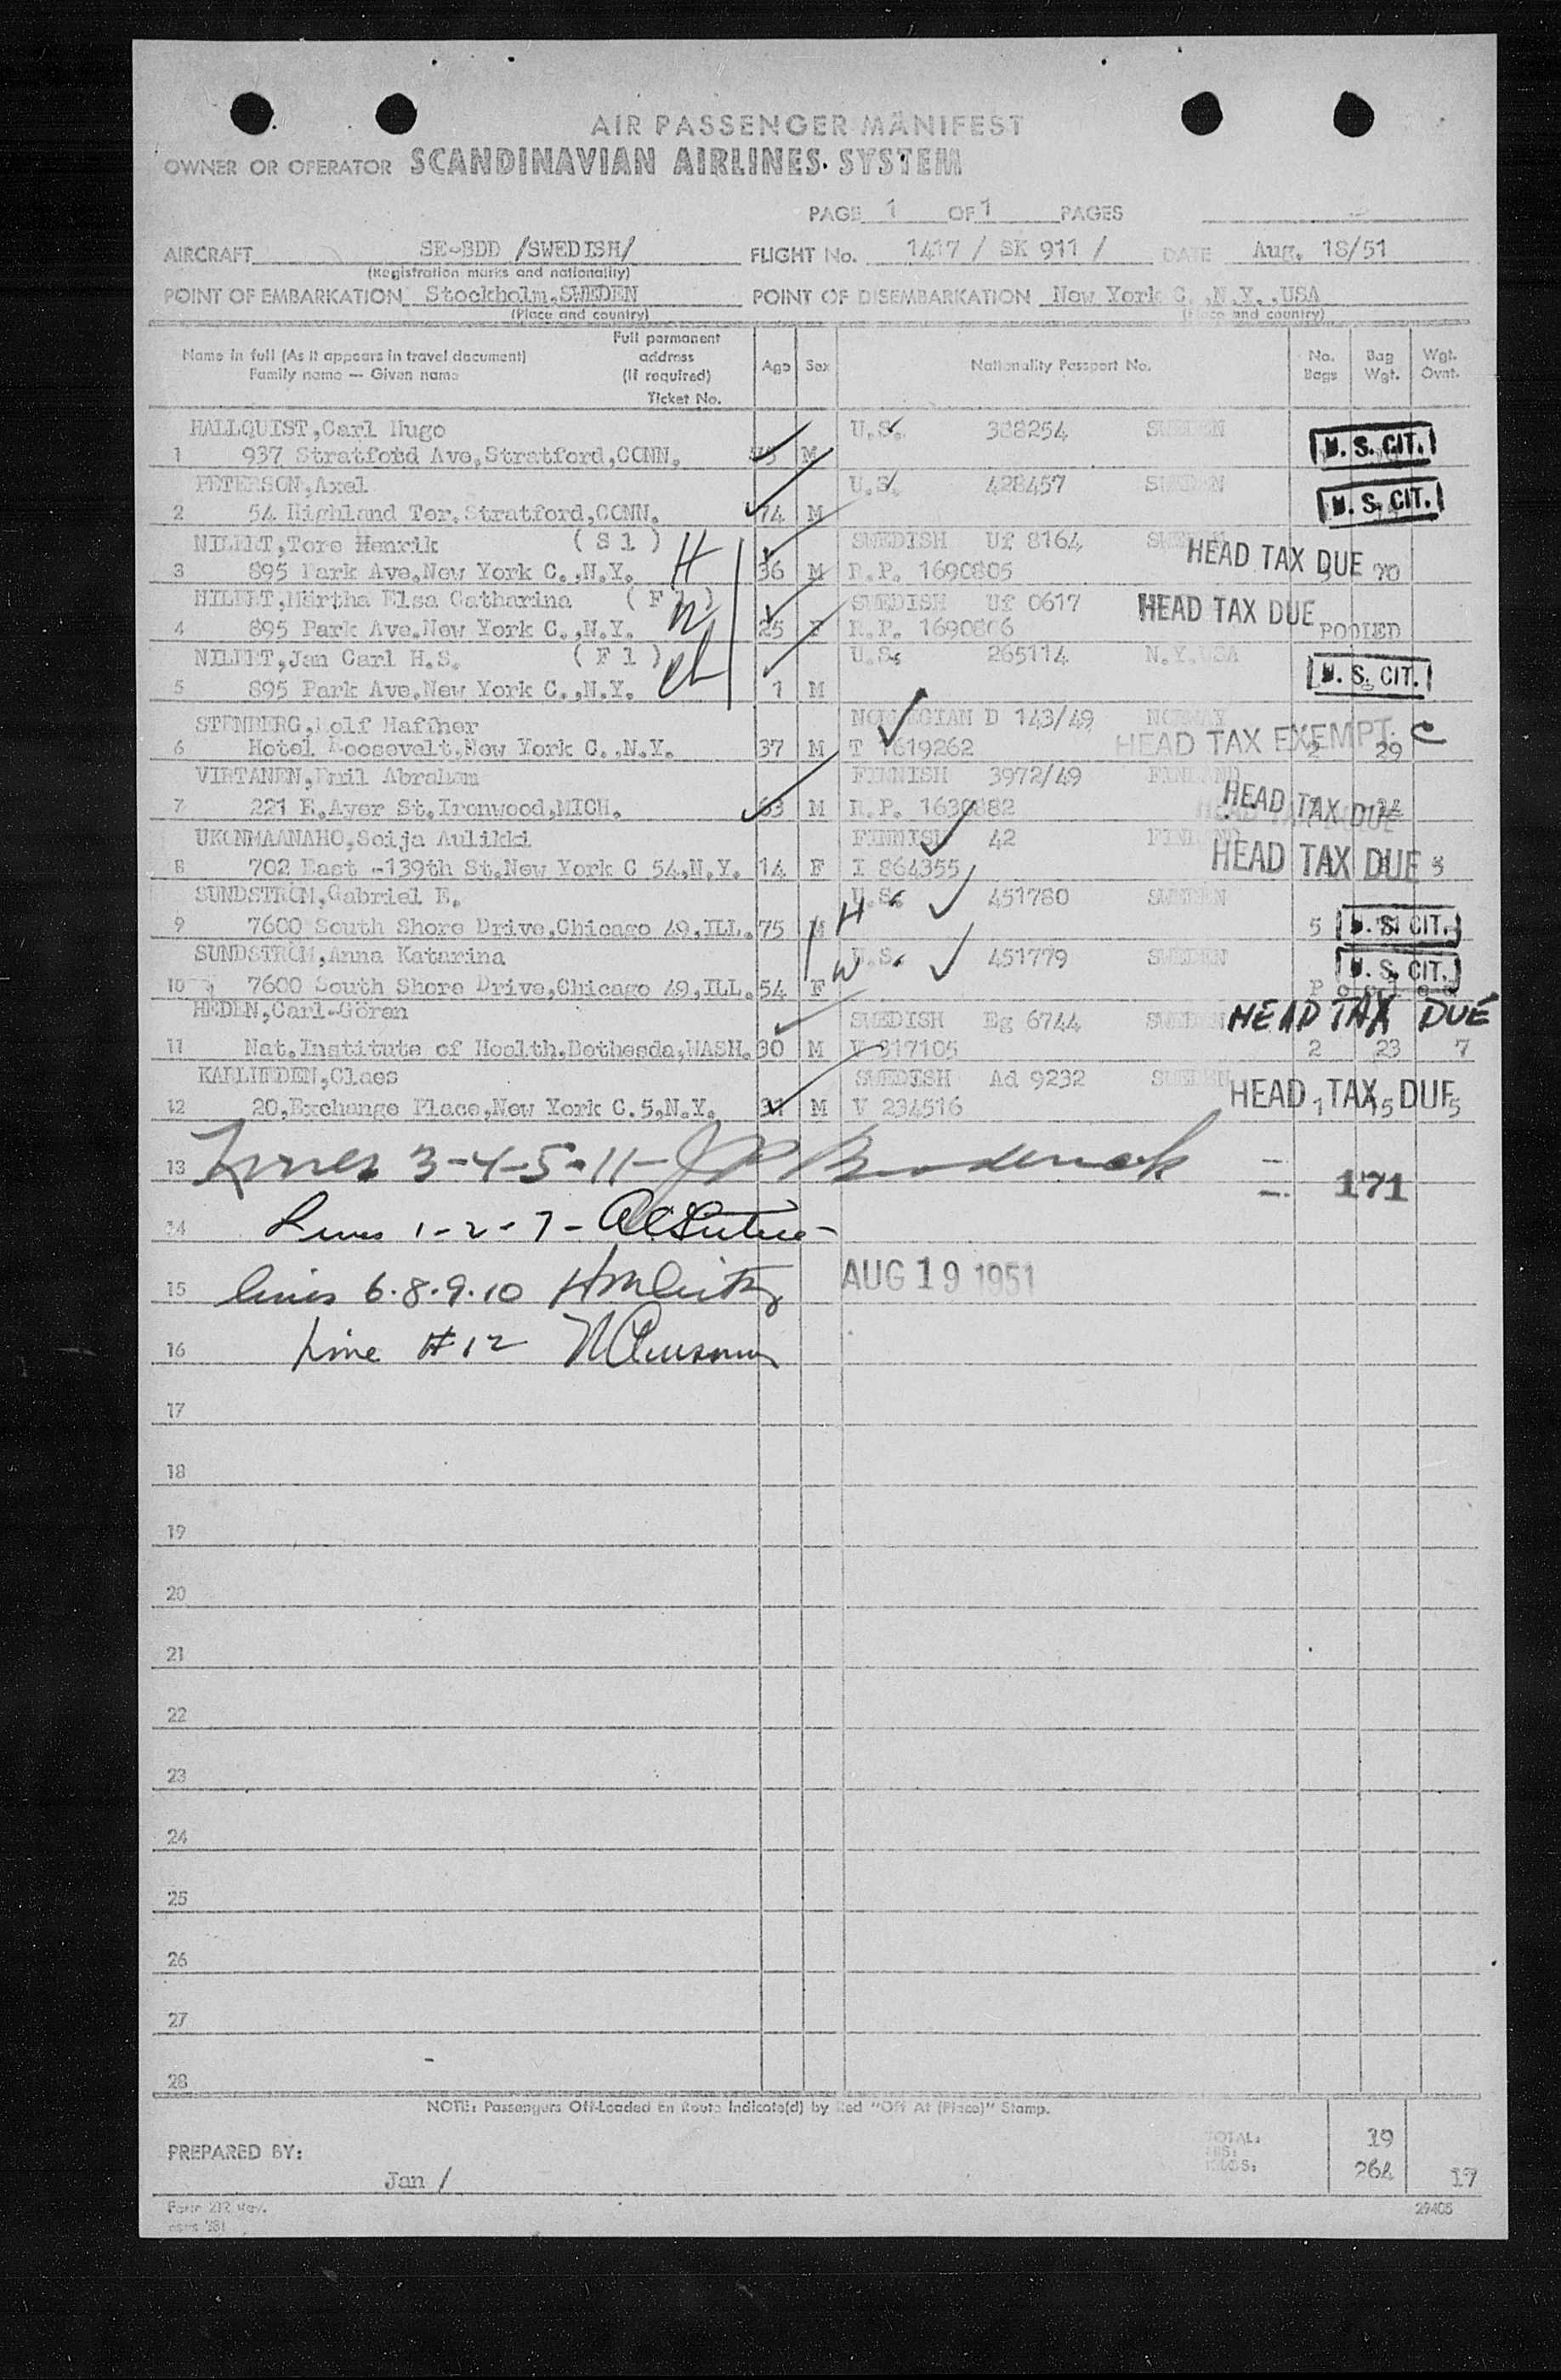 AIR PASSENGER MANIFEST
OWNER OR OPERATOR SCANDINAVIAN AIRLINES SYSTEM
PAGE 1 OF 1 PAGES
AIRCRAFT SE-BDD /SWEDISH/ FLIGHT No. 1417 / SK 911 / DATE Aug. 18/51
(Registration marks and nationality)
POINT OF EMBARKATION Stockholm,SWEDEN POINT OF DISEMBARKATION New York C.,N.Y.,USA
(Place and country) (Place and country)
Name in full (As it appears in travel document) Family name — Given name
Full permanent address (If required) Ticket No.
Age Sex Nationality Passport No. No. Bags Bag Wgt. Wgt. Ovnt.
HALLQUIST,Carl Hugo U.S. 388254 SWEDEN
1 937 Stratford Ave,Stratford,CONN. M U.S. CIT.
PETERSON,Axel U.S. 428457 SWEDEN
2 54 Highland Ter.Stratford,CONN. 74 M U.S. CIT.
NILERT,Tore Henrik ( S 1 ) H SWEDISH Uf 8164 SWEDEN
3 895 Park Ave.New York C.,N.Y. 36 M R.P. 1690805 HEAD TAX DUE 70
NILERT,Märtha Elsa Catharina ( F 1 ) W SWEDISH Uf 0617
4 895 Park Ave.New York C.,N.Y. 25 F R.P. 1690806 HEAD TAX DUE POOLED
NILERT,Jan Carl H.S. ( F 1 ) ch U.S. 265114 N.Y.USA
5 895 Park Ave.New York C.,N.Y. 1 M U.S. CIT.
STENBERG,Rolf Haffner NORWEGIAN D 143/49 NORWAY
6 Hotel Roosevelt,New York C.,N.Y. 37 M T 1619262 HEAD TAX EXEMPT 2 29 C
VIRTANEN,Emil Abraham FINNISH 3972/49 FINLAND
7 221 E.Ayer St.Ironwood,MICH. 63 M R.P. 1630882 HEAD TAX DUE
UKONMAANAHO,Seija Aulikki FINNISH 42 FINLAND
8 702 East -139th St.New York C 54,N.Y. 14 F I 864355 HEAD TAX DUE 5
SUNDSTRÖM,Gabriel E. U.S. 451780 SWEDEN
9 7600 South Shore Drive,Chicago 49,ILL. 75 M H 5 U.S. CIT.
SUNDSTRÖM,Anna Katarina U.S. 451779 SWEDEN
10 7600 South Shore Drive,Chicago 49,ILL. 54 F W U.S. CIT.
HEDEN,Carl-Göran SWEDISH Eg 6744 SWEDEN HEAD TAX DUE
11 Nat.Institute of Health,Bethesda,WASH. 30 M V 317105 2 23 7
KARLHEDEN,Claes SWEDISH Ad 9232 SWEDEN
12 20,Exchange Place,New York C.5,N.Y. 31 M V 234516 HEAD TAX DUE 1 15 5
13 Lines 3-4-5-11- 171
14 Lines 1-2-7-
15 lines 6.8.9.10 AUG 19 1951
16 Line #12
17
18
19
20
21
22
23
24
25
26
27
28
NOTE: Passengers Off-Loaded En Route Indicate(d) by Red "Off At (Place)" Stamp.
TOTAL: 19
PREPARED BY: 264 17
Jan /
Form 212 Rev. 29405